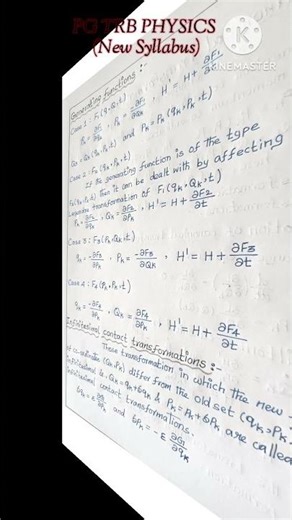 PG TRB PHYSICS
(New Syllabus)
KINEMASTER
Generating functions :-
Case 1 : F₁ (q, Q, t)
Pₖ = ∂F₁/∂qₖ , Pₖ = -∂F₁/∂Qₖ , H' = H + ∂F₁/∂t
Qₖ = Qₖ (qₖ, Pₖ, t) and Pₖ = Pₖ (qₖ, Pₖ, t)
Case 2 : F₂ (qₖ, Pₖ, t)
If the generating function is of the type
F₂ (qₖ, Pₖ, t) Then it can be dealt with by affecting
Legendre transformation of F₁ (qₖ, Qₖ, t)
Pₖ = ∂F₂/∂qₖ , Qₖ = ∂F₂/∂Pₖ , H' = H + ∂F₂/∂t
Case 3 : F₃ (Pₖ, Qₖ, t)
qₖ = -∂F₃/∂Pₖ , Pₖ = -∂F₃/∂Qₖ , H' = H + ∂F₃/∂t
Case 4 : F₄ (Pₖ, Pₖ, t)
qₖ = -∂F₄/∂Pₖ , Qₖ = ∂F₄/∂Pₖ , H' = H + ∂F₄/∂t
Infinitesimal contact transformations :-
These transformation in which the new
of co-ordinates (Qₖ, Pₖ) differ from the old set (qₖ, Pₖ
infinitesimal ie, Qₖ = qₖ + δqₖ & Pₖ = Pₖ + δPₖ are called
infinitesimal contact transformations.
δqₖ = ε ∂G/∂Pₖ and δPₖ = -ε ∂G/∂qₖ